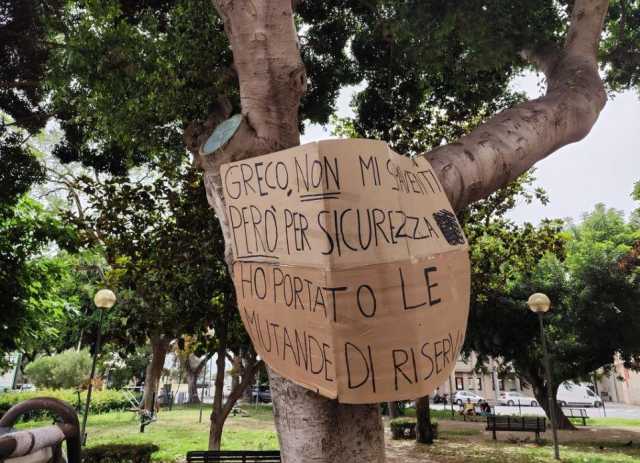 GRECO, NON MI SPAVENTI
PERÒ PER SICUREZZA
HO PORTATO LE
MUTANDE DI RISERVA